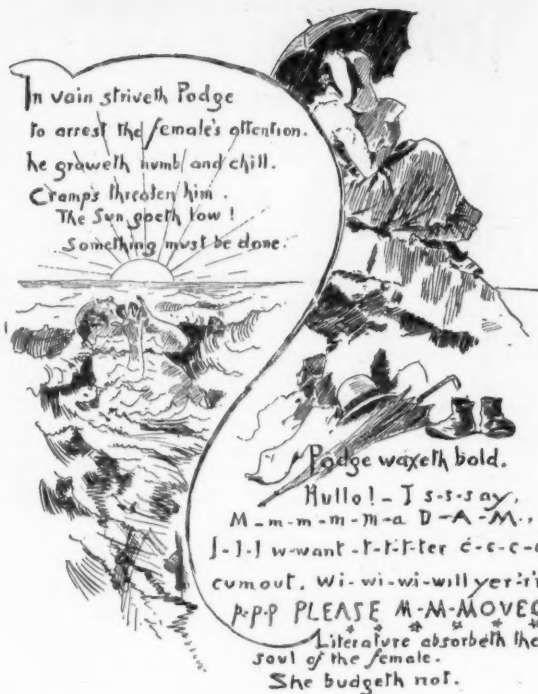 In vain striveth Podge
to arrest the female's attention.
he groweth numb and chill.
Cramps threaten him.
The Sun goeth low!
Something must be done.
Podge waxeth bold.
Hullo! - I s-s-say,
M-m-m-m-m-a D-A-M.,
I-I-I w-want-t-t-t-ter c-c-c-
cum out. Wi-wi-wi-will yer
p-p-p PLEASE M-M-MOVE
* * * * *
Literature absorbeth the
soul of the female.
She budgeth not.